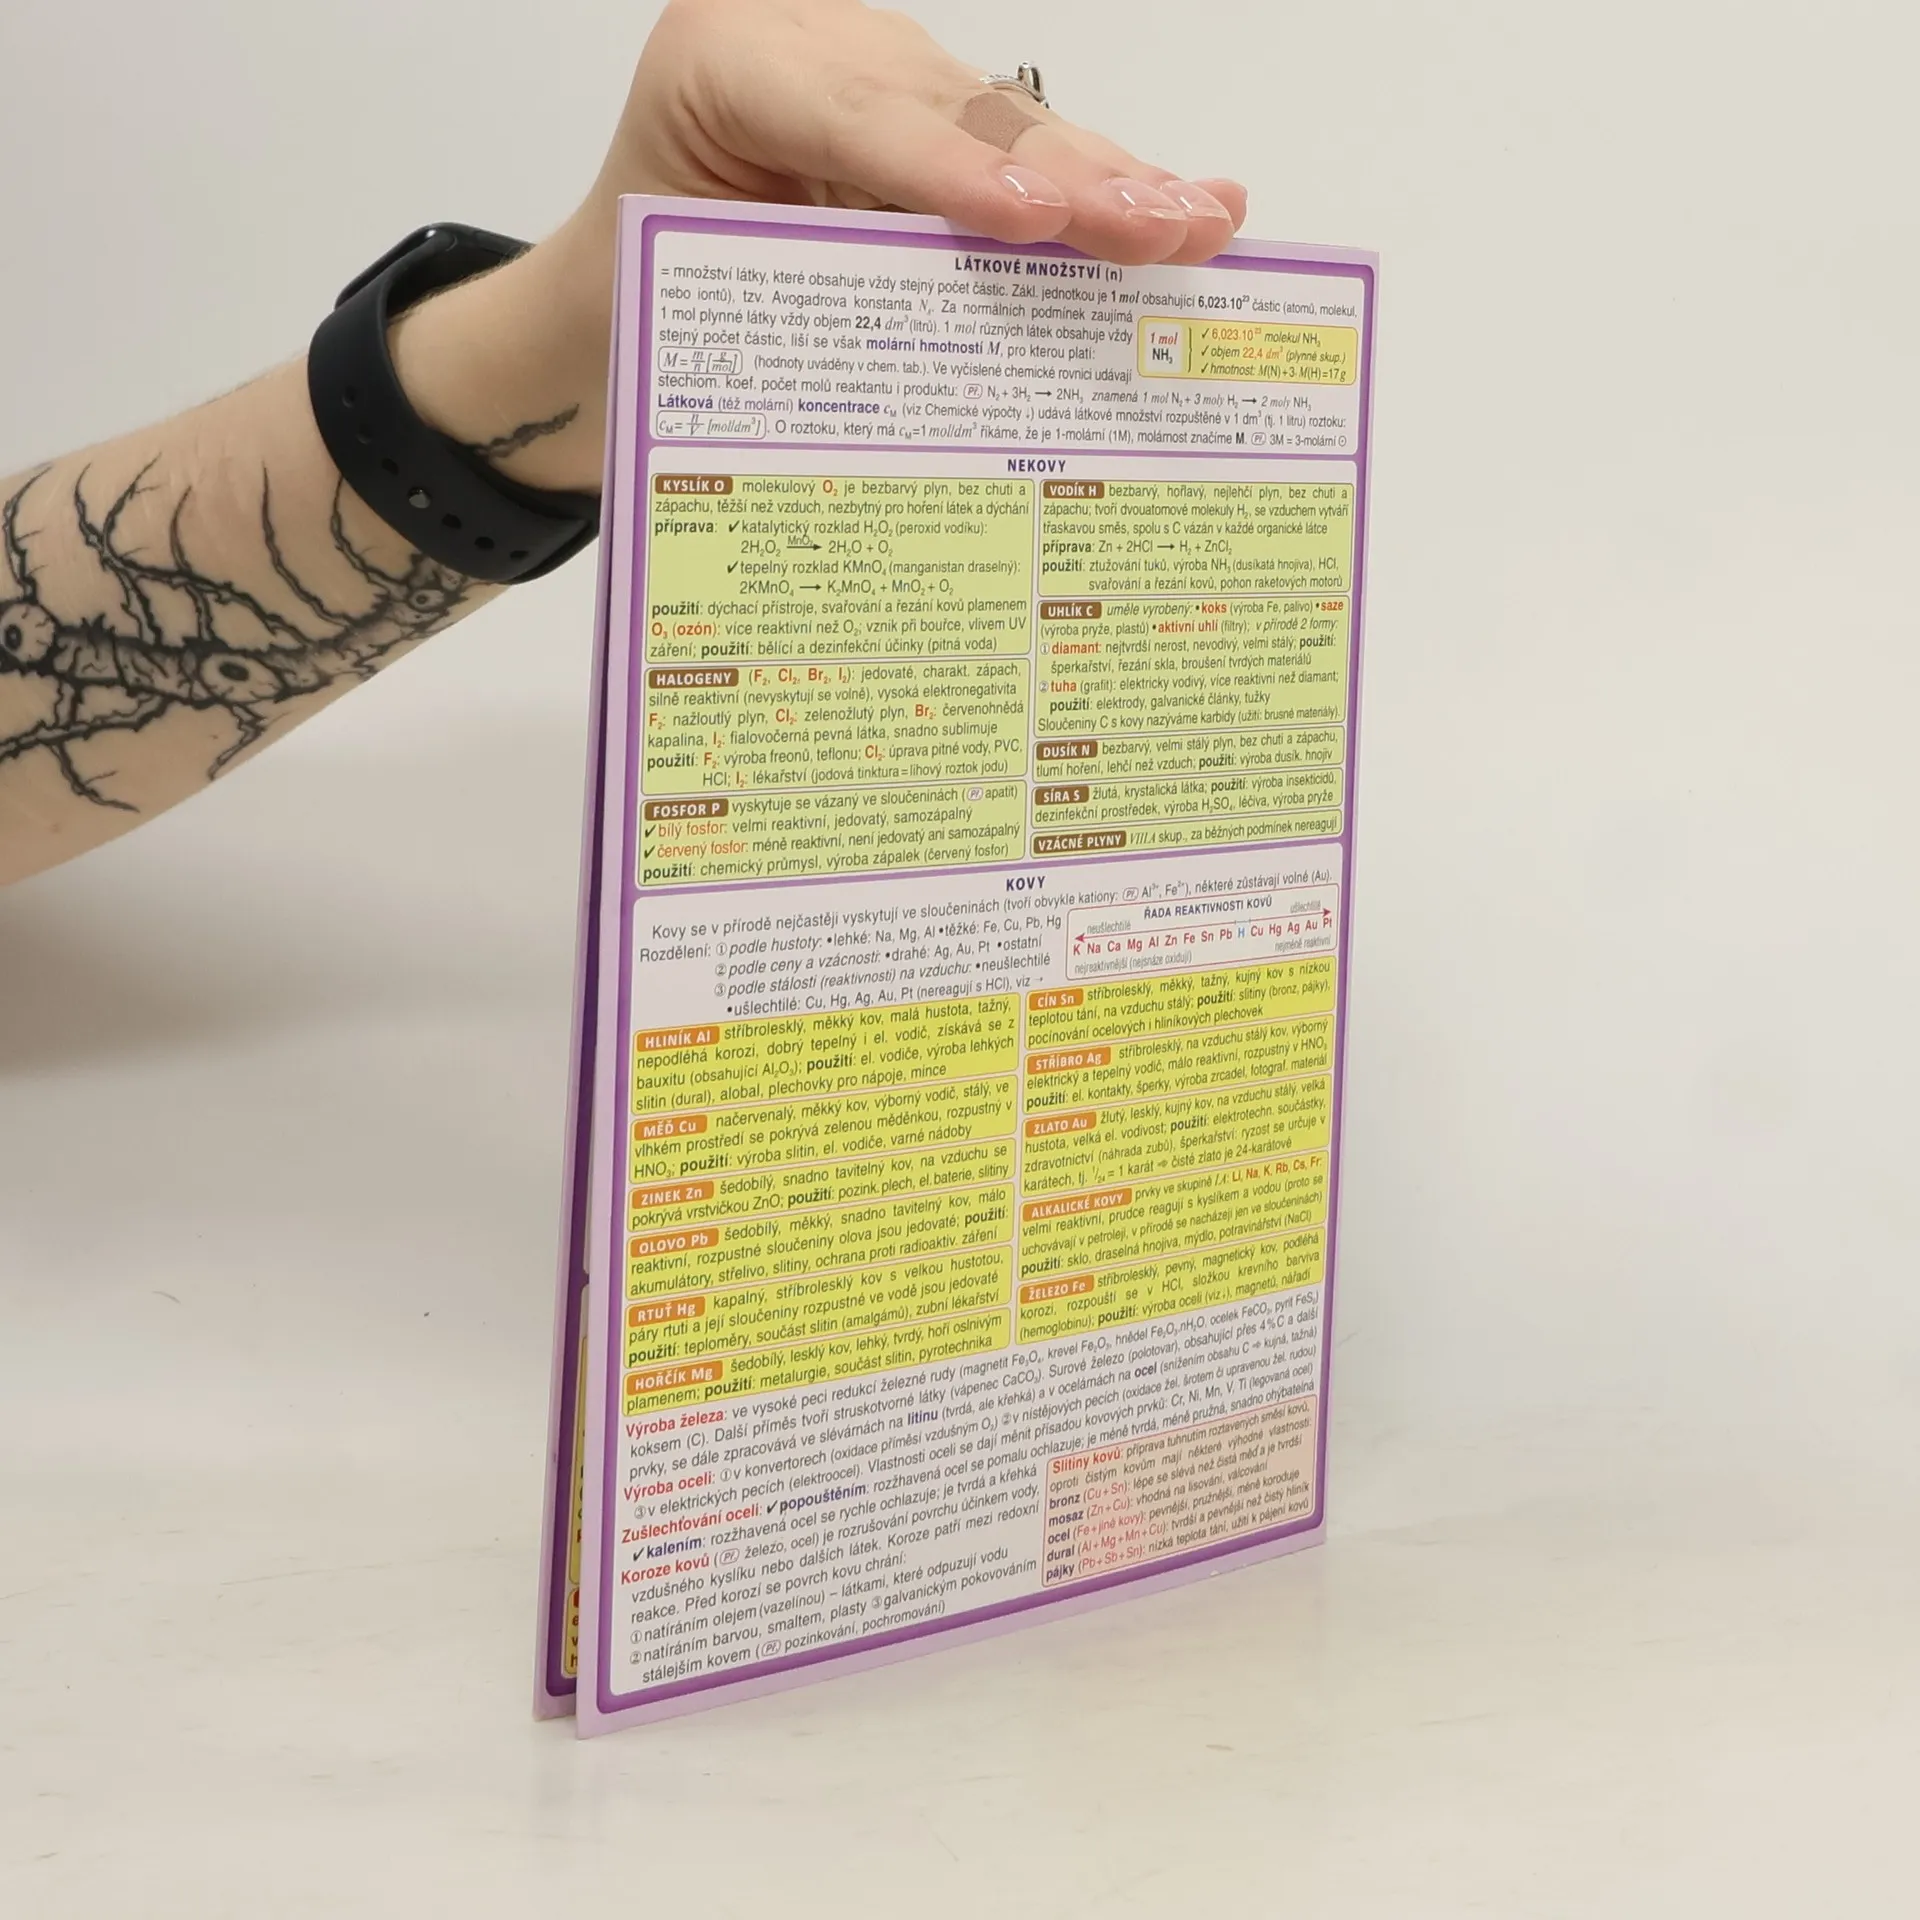 LÁTKOVÉ MNOŽSTVÍ (n)
= množství látky, které obsahuje vždy stejný počet částic. Zákl. jednotkou je 1 mol obsahující 6,023.10²³ částic (atomů, molekul,
nebo iontů), tzv. Avogadrova konstanta N_A. Za normálních podmínek zaujímá
1 mol plynné látky vždy objem 22,4 dm³ (litrů). 1 mol různých látek obsahuje vždy
stejný počet částic, liší se však molární hmotností M, pro kterou platí:
M = m/n [g/mol] (hodnoty uváděny v chem. tab.). Ve vyčíslené chemické rovnici udávají
1 mol NH₃
✓ 6,023.10²³ molekul NH₃
✓ objem 22,4 dm³ (plynné skup.)
✓ hmotnost: M(N)+3. M(H)=17g
stechiom. koef. počet molů reaktantu i produktu: Př. N₂ + 3H₂ → 2NH₃ znamená 1 mol N₂ + 3 moly H₂ → 2 moly NH₃
Látková (též molární) koncentrace c_M (viz Chemické výpočty ↓) udává látkové množství rozpuštěné v 1 dm³ (tj. 1 litru) roztoku:
c_M = n/V [mol/dm³]. O roztoku, který má c_M=1 mol/dm³ říkáme, že je 1-molární (1M), molárnost značíme M. Př. 3M = 3-molární ⊙
NEKOVY
KYSLÍK O molekulový O₂ je bezbarvý plyn, bez chuti a
zápachu, těžší než vzduch, nezbytný pro hoření látek a dýchání
příprava: ✓katalytický rozklad H₂O₂ (peroxid vodíku):
2H₂O₂ MnO₂→ 2H₂O + O₂
✓tepelný rozklad KMnO₄ (manganistan draselný):
2KMnO₄ → K₂MnO₄ + MnO₂ + O₂
použití: dýchací přístroje, svařování a řezání kovů plamenem
O₃ (ozón): více reaktivní než O₂; vznik při bouřce, vlivem UV
záření; použití: bělící a dezinfekční účinky (pitná voda)
HALOGENY (F₂, Cl₂, Br₂, I₂): jedovaté, charakt. zápach,
silně reaktivní (nevyskytují se volně), vysoká elektronegativita
F₂: nažloutlý plyn, Cl₂: zelenožlutý plyn, Br₂: červenohnědá
kapalina, I₂: fialovočerná pevná látka, snadno sublimuje
použití: F₂: výroba freonů, teflonu; Cl₂: úprava pitné vody, PVC,
HCl; I₂: lékařství (jodová tinktura = lihový roztok jodu)
FOSFOR P vyskytuje se vázaný ve sloučeninách (Př. apatit)
✓bílý fosfor: velmi reaktivní, jedovatý, samozápalný
✓červený fosfor: méně reaktivní, není jedovatý ani samozápalný
použití: chemický průmysl, výroba zápalek (červený fosfor)
VODÍK H bezbarvý, hořlavý, nejlehčí plyn, bez chuti a
zápachu; tvoří dvouatomové molekuly H₂, se vzduchem vytváří
třaskavou směs, spolu s C vázán v každé organické látce
příprava: Zn + 2HCl → H₂ + ZnCl₂
použití: ztužování tuků, výroba NH₃ (dusíkatá hnojiva), HCl,
svařování a řezání kovů, pohon raketových motorů
UHLÍK C uměle vyrobený: •koks (výroba Fe, palivo) •saze
(výroba pryže, plastů) •aktivní uhlí (filtry); v přírodě 2 formy:
①diamant: nejtvrdší nerost, nevodivý, velmi stálý; použití:
šperkařství, řezání skla, broušení tvrdých materiálů
②tuha (grafit): elektricky vodivý, více reaktivní než diamant;
použití: elektrody, galvanické články, tužky
Sloučeniny C s kovy nazýváme karbidy (užití: brusné materiály).
DUSÍK N bezbarvý, velmi stálý plyn, bez chuti a zápachu,
tlumí hoření, lehčí než vzduch; použití: výroba dusík. hnojiv
SÍRA S žlutá, krystalická látka; použití: výroba insekticidů,
dezinfekční prostředek, výroba H₂SO₄, léčiva, výroba pryže
VZÁCNÉ PLYNY VIII.A skup., za běžných podmínek nereagují
KOVY
Kovy se v přírodě nejčastěji vyskytují ve sloučeninách (tvoří obvykle kationy: Př. Al³⁺, Fe²⁺), některé zůstávají volné (Au).
Rozdělení: ①podle hustoty: •lehké: Na, Mg, Al •těžké: Fe, Cu, Pb, Hg
②podle ceny a vzácnosti: •drahé: Ag, Au, Pt •ostatní
③podle stálosti (reaktivnosti) na vzduchu: •neušlechtilé
•ušlechtilé: Cu, Hg, Ag, Au, Pt (nereagují s HCl), viz →
ŘADA REAKTIVNOSTI KOVŮ
neušlechtilé ušlechtilé
K Na Ca Mg Al Zn Fe Sn Pb H Cu Hg Ag Au Pt
nejreaktivnější (nejsnáze oxidují) nejméně reaktivní
HLINÍK Al stříbrolesklý, měkký kov, malá hustota, tažný,
nepodléhá korozi, dobrý tepelný i el. vodič, získává se z
bauxitu (obsahující Al₂O₃); použití: el. vodiče, výroba lehkých
slitin (dural), alobal, plechovky pro nápoje, mince
MĚĎ Cu načervenalý, měkký kov, výborný vodič, stálý, ve
vlhkém prostředí se pokrývá zelenou měděnkou, rozpustný v
HNO₃; použití: výroba slitin, el. vodiče, varné nádoby
ZINEK Zn šedobílý, snadno tavitelný kov, na vzduchu se
pokrývá vrstvičkou ZnO; použití: pozink. plech, el. baterie, slitiny
OLOVO Pb šedobílý, měkký, snadno tavitelný kov, málo
reaktivní, rozpustné sloučeniny olova jsou jedovaté; použití:
akumulátory, střelivo, slitiny, ochrana proti radioaktiv. záření
RTUŤ Hg kapalný, stříbrolesklý kov s velkou hustotou,
páry rtuti a její sloučeniny rozpustné ve vodě jsou jedovaté
použití: teploměry, součást slitin (amalgámů), zubní lékařství
HOŘČÍK Mg šedobílý, lesklý kov, lehký, tvrdý, hoří oslnivým
plamenem; použití: metalurgie, součást slitin, pyrotechnika
CÍN Sn stříbrolesklý, měkký, tažný, kujný kov s nízkou
teplotou tání, na vzduchu stálý; použití: slitiny (bronz, pájky),
pocínování ocelových i hliníkových plechovek
STŘÍBRO Ag stříbrolesklý, na vzduchu stálý kov, výborný
elektrický a tepelný vodič, málo reaktivní, rozpustný v HNO₃
použití: el. kontakty, šperky, výroba zrcadel, fotograf. materiál
ZLATO Au žlutý, lesklý, kujný kov, na vzduchu stálý, velká
hustota, velká el. vodivost; použití: elektrotechn. součástky,
zdravotnictví (náhrada zubů), šperkařství: ryzost se určuje v
karátech, tj. 1/24 = 1 karát ⇒ čisté zlato je 24-karátové
ALKALICKÉ KOVY prvky ve skupině I.A: Li, Na, K, Rb, Cs, Fr:
velmi reaktivní, prudce reagují s kyslíkem a vodou (proto se
uchovávají v petroleji, v přírodě se nacházejí jen ve sloučeninách)
použití: sklo, draselná hnojiva, mýdlo, potravinářství (NaCl)
ŽELEZO Fe stříbrolesklý, pevný, magnetický kov, podléhá
korozi, rozpouští se v HCl, složkou krevního barviva
(hemoglobinu); použití: výroba oceli (viz ↓), magnetů, nářadí
Výroba železa: ve vysoké peci redukcí železné rudy (magnetit Fe₃O₄, krevel Fe₂O₃, hnědel Fe₂O₃.nH₂O, ocelek FeCO₃, pyrit FeS₂)
koksem (C). Další příměs tvoří struskotvorné látky (vápenec CaCO₃). Surové železo (polotovar), obsahující přes 4% C a další
prvky, se dále zpracovává ve slévárnách na litinu (tvrdá, ale křehká) a v ocelárnách na ocel (snížením obsahu C ⇒ kujná, tažná)
Výroba oceli: ①v konvertorech (oxidace příměsí vzdušným O₂) ②v nístějových pecích (oxidace žel. šrotem či upravenou žel. rudou)
③v elektrických pecích (elektroocel). Vlastnosti oceli se dají měnit přísadou kovových prvků: Cr, Ni, Mn, V, Ti (legovaná ocel)
Zušlechťování oceli: ✓popouštěním: rozžhavená ocel se pomalu ochlazuje; je méně tvrdá, méně pružná, snadno ohýbatelná
✓kalením: rozžhavená ocel se rychle ochlazuje; je tvrdá a křehká
Koroze kovů (Př. železo, ocel) je rozrušování povrchu účinkem vody,
vzdušného kyslíku nebo dalších látek. Koroze patří mezi redoxní
reakce. Před korozí se povrch kovu chrání:
①natíráním olejem (vazelínou) – látkami, které odpuzují vodu
②natíráním barvou, smaltem, plasty ③galvanickým pokovováním
stálejším kovem (Př. pozinkování, pochromování)
Slitiny kovů: příprava tuhnutím roztavených směsí kovů,
oproti čistým kovům mají některé výhodné vlastnosti:
bronz (Cu+Sn): lépe se slévá než čistá měď a je tvrdší
mosaz (Zn+Cu): vhodná na lisování, válcování
ocel (Fe+jiné kovy): pevnější, pružnější, méně koroduje
dural (Al+Mg+Mn+Cu): tvrdší a pevnější než čistý hliník
pájky (Pb+Sb+Sn): nízká teplota tání, užití k pájení kovů